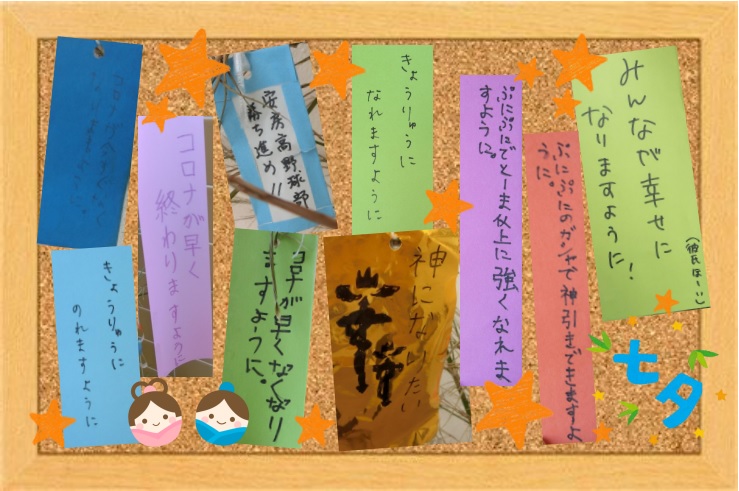 みんなが幸せに
なりますように!
(彼氏ほーい)
ぷにぷにのガシャで神引きできますよ
うに。
ぷにぷにでとーま以上に強くなれま
すように。
きょうりゅうに
なれますように
安房高野球部
勝ち進め!!
コロナが早く
終わりますように
七夕
神になりたい
コロナが早くなくなり
ますように。
きょうりゅうに
のれますように